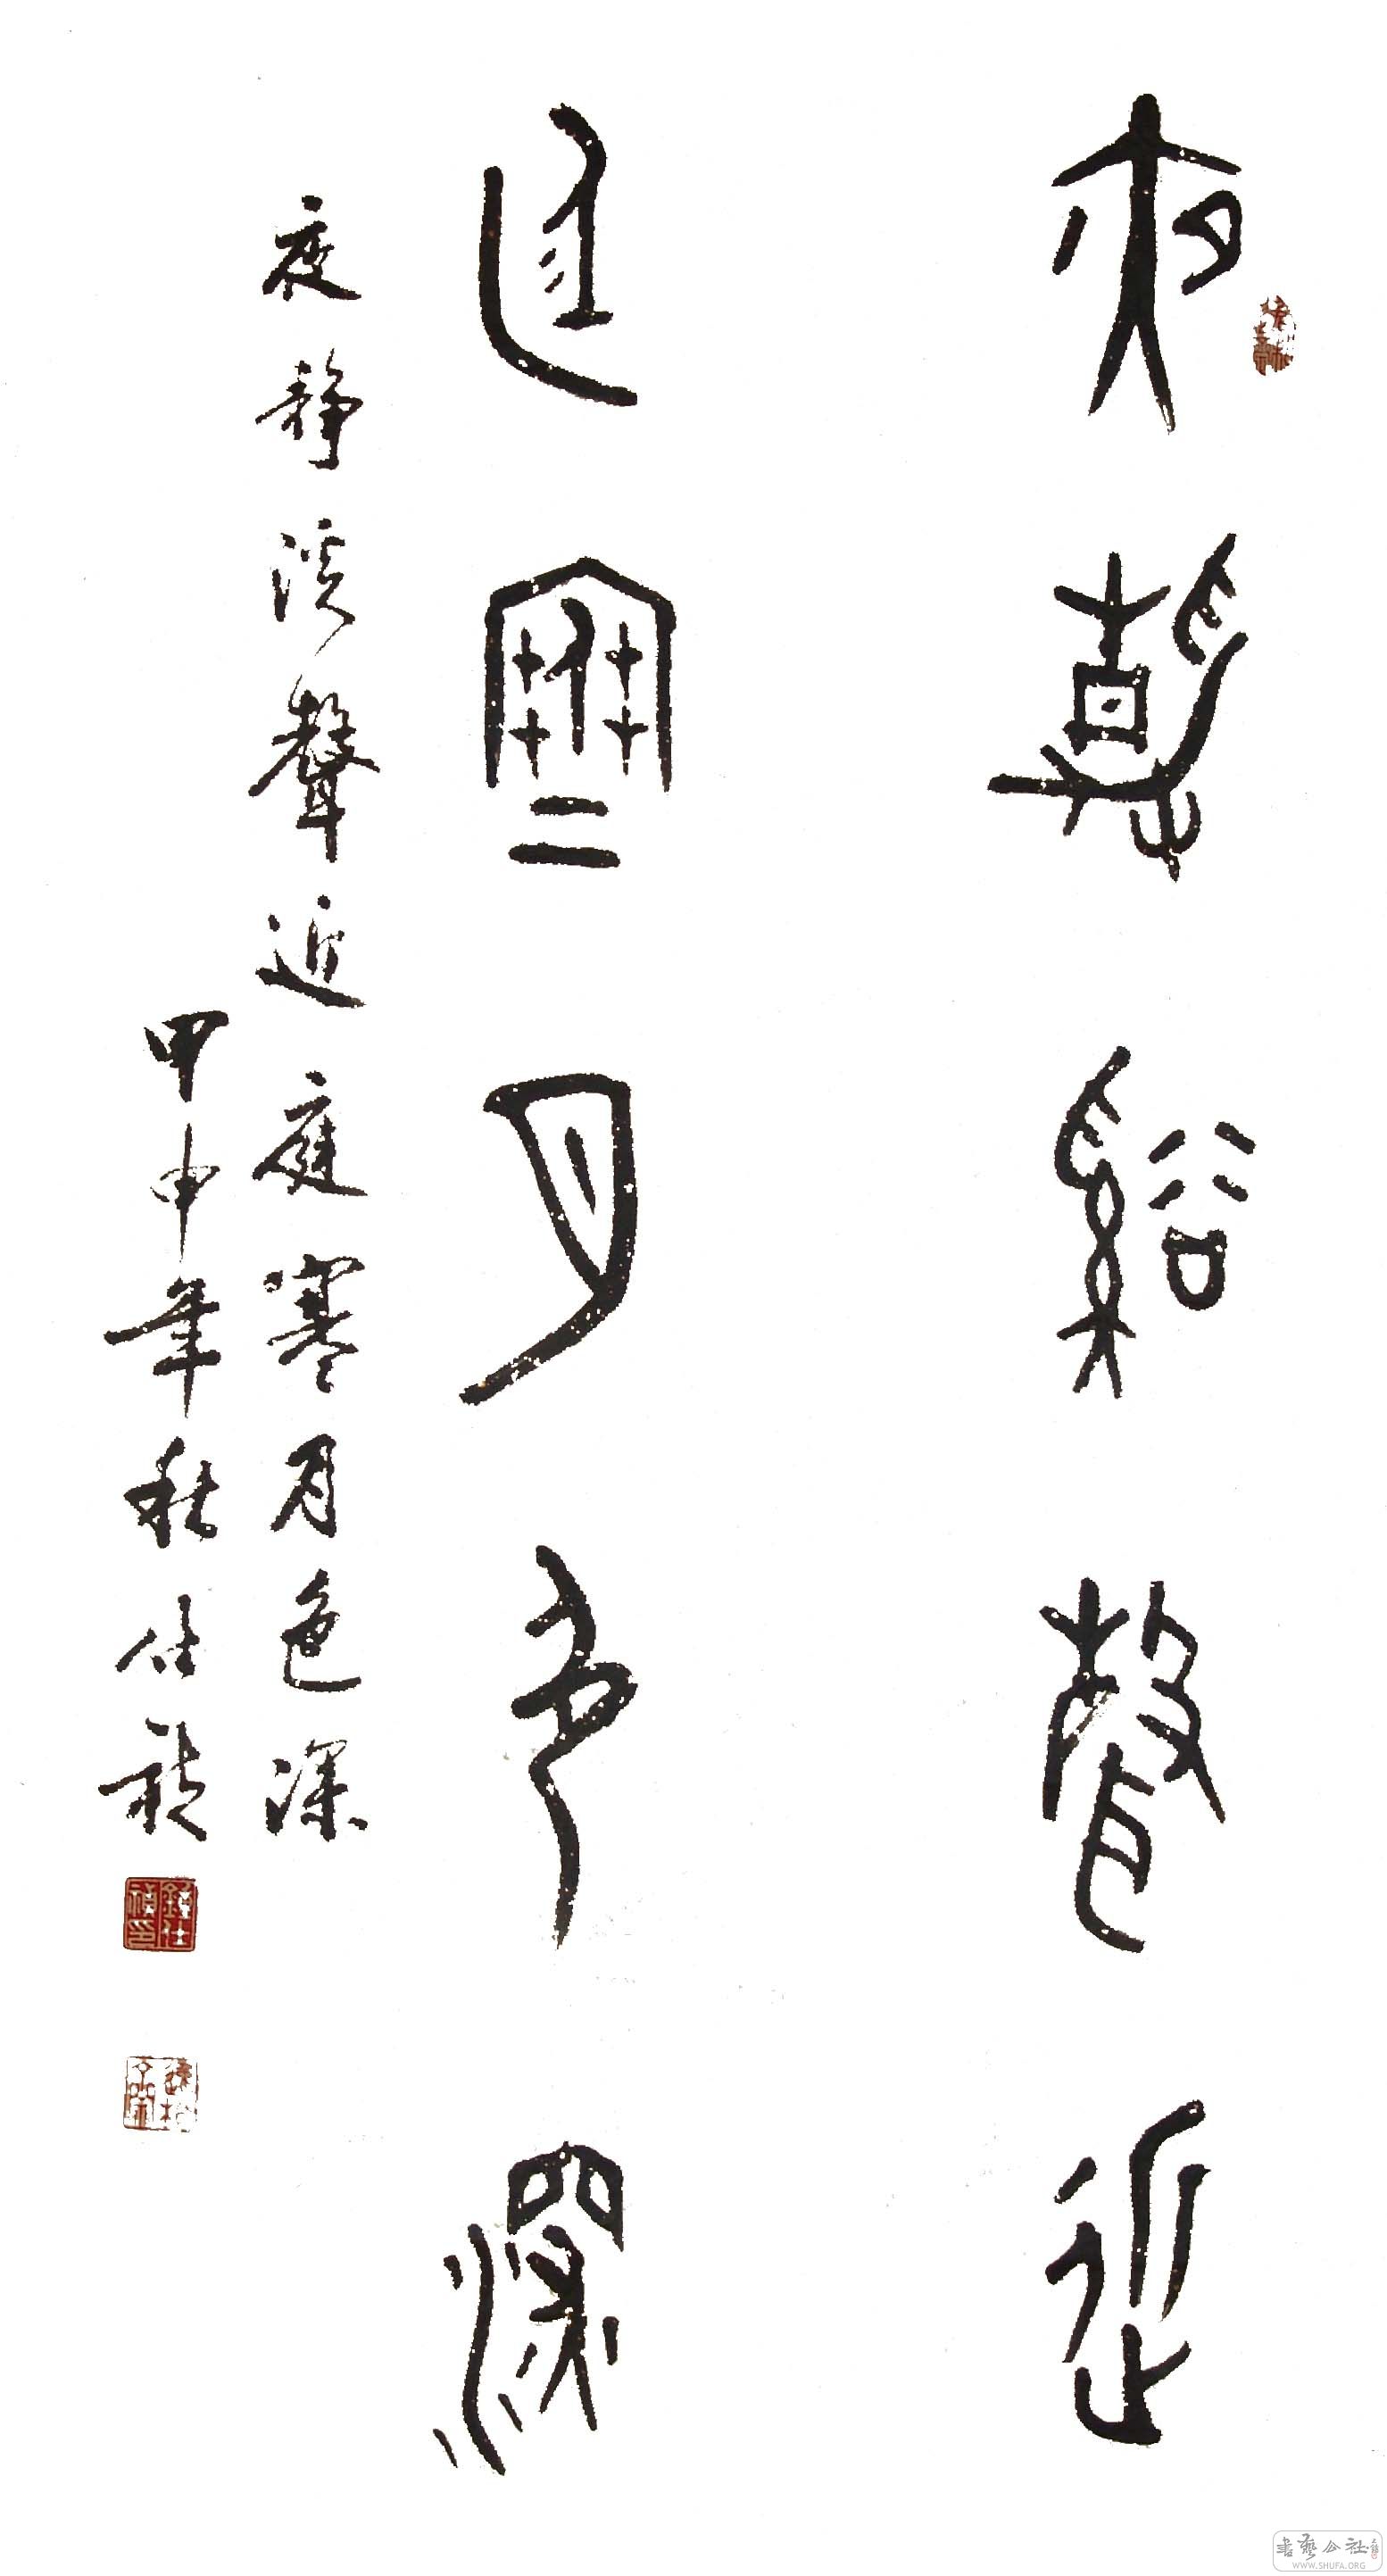 夜靜谿聲近
庭寒月色深
夜静溪聲近庭寒月色深
甲申年秋仕禎
鍾仕禎印
書藝公社
WWW.SHUFA.ORG